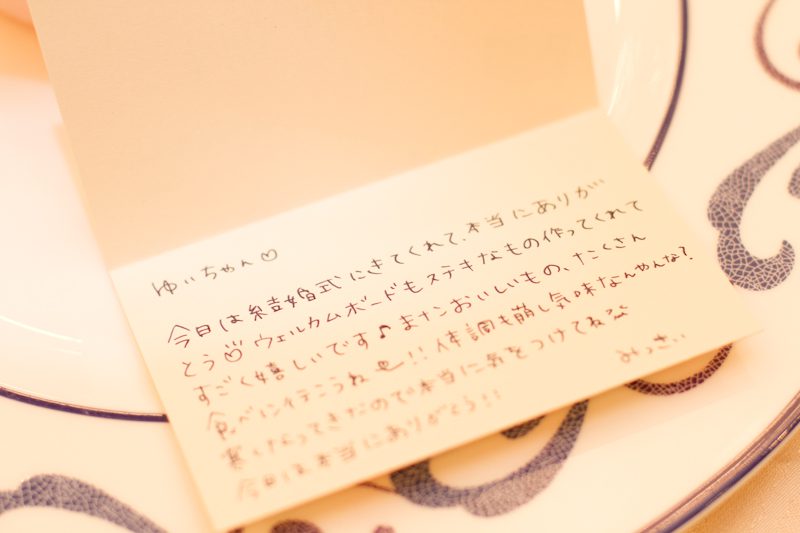 ゆいちゃん♡
今日は結婚式にきてくれて、本当にありが
とう♡ウェルカムボードもステキなもの作ってくれて
すごく嬉しいです♪またおいしいもの、たくさん
食べに行こうね!!体調も崩し気味なんやんな?
寒くなってきたので本当に気をつけてね
今日は本当にありがとう!!
みっさい